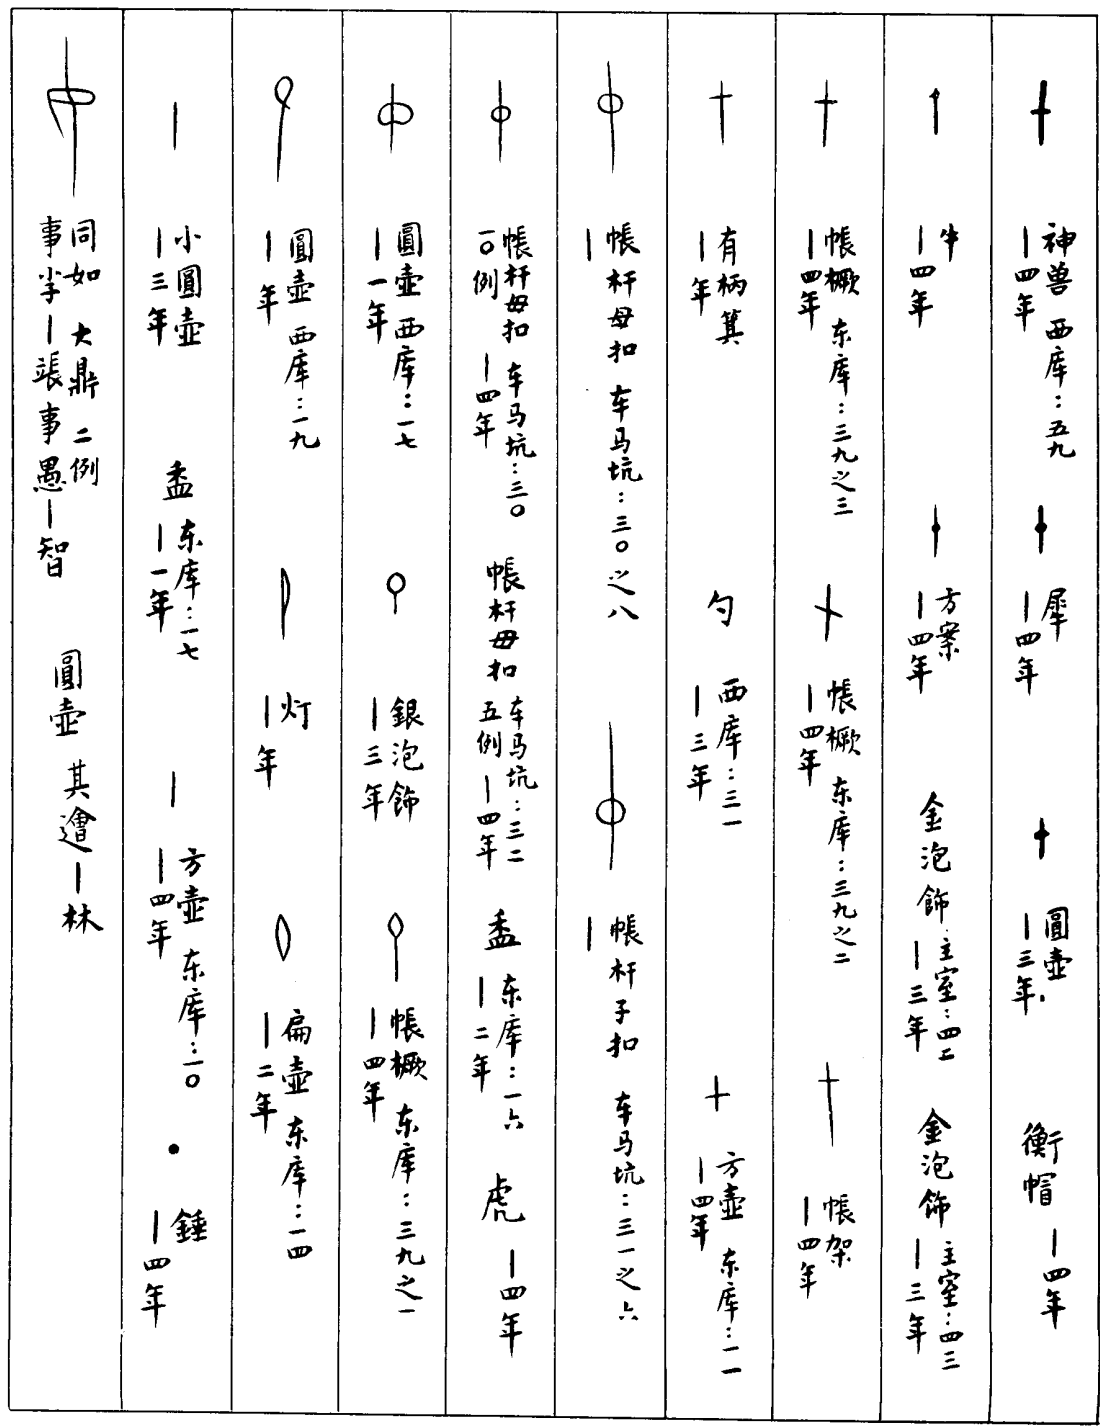 神兽 西库：五九
丨四年
犀
丨四年
圓壺
丨三年
衡帽 丨四年
牛
丨四年
方案
丨四年
金泡飾 主室：四二
丨三年
金泡飾 主室：四三
丨三年
帳橛 东库：三九之三
丨四年
帳橛 东库：三九之二
丨四年
帳架
丨四年
有柄箕
丨年
勺 西库：三一
丨三年
方壺 东库：一一
丨四年
帳杆母扣 车马坑：三〇之八
丨
帳杆子扣 车马坑：三一之六
丨
帳杆母扣 车马坑：三〇
一〇例 丨四年
帳杆母扣 车马坑：三二
五例 丨四年
盉 东库：一六
丨二年
虎 丨四年
圓壺 西库：一七
丨一年
銀泡飾
丨三年
帳橛 东库：三九之一
丨四年
圓壺 西库：一九
丨年
灯
丨年
扁壺 东库：一四
丨二年
小圓壺
丨三年
盉 东库：一七
丨一年
方壺 东库：一〇
丨四年
錘
丨四年
同如 大鼎二例
事李丨 事愚丨智
圓壺 其 丨林